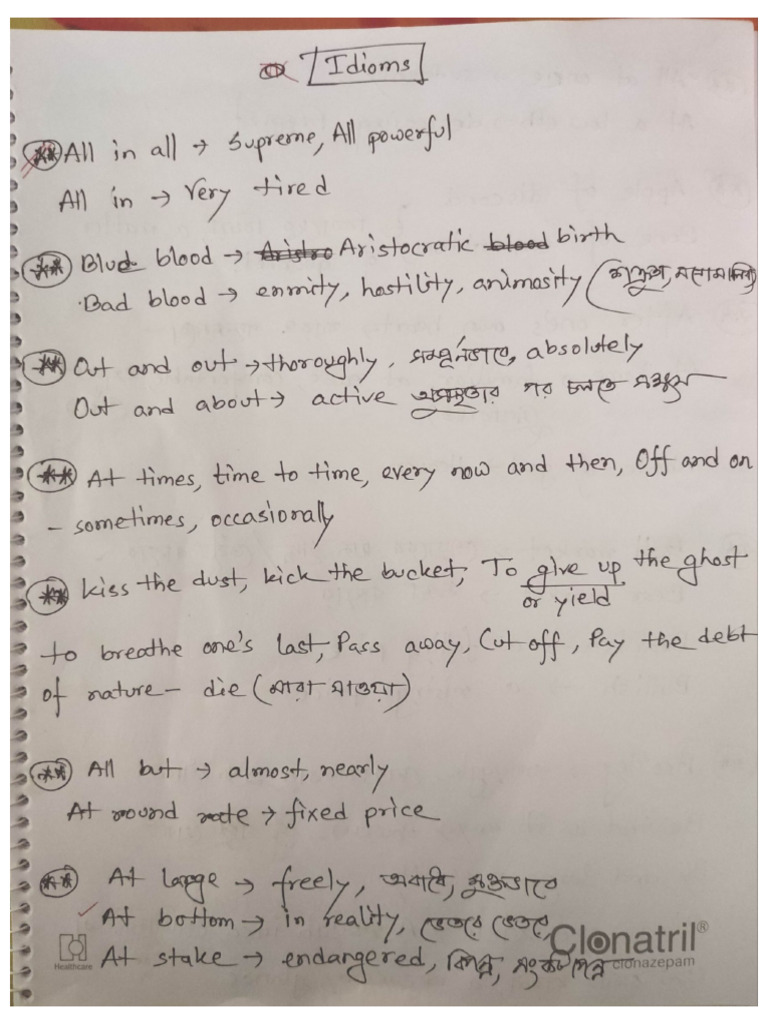 Idioms
** All in all → Supreme, All powerful
All in → Very tired
** Blue blood → Aristro Aristocratic blood birth
Bad blood → enmity, hostility, animosity (শত্রুতা, মনোমালিন্য)
** Out and out → thoroughly, সম্পূর্নভাবে, absolutely
Out and about → active অসুস্থতার পর চলতে সক্ষম
** At times, time to time, every now and then, Off and on
- sometimes, occasionally
** Kiss the dust, kick the bucket, To give up the ghost
or yield
to breathe one's last, Pass away, Cut off, Pay the debt
of nature - die (মারা যাওয়া)
** All but → almost, nearly
At round rate → fixed price
** At large → freely, অবাধে, মুক্তভাবে
At bottom → in reality, ভেতরে ভেতরে,
Clonatril®
At stake → endangered, বিপন্ন, সংকটাপন্ন
clonazepam
Healthcare